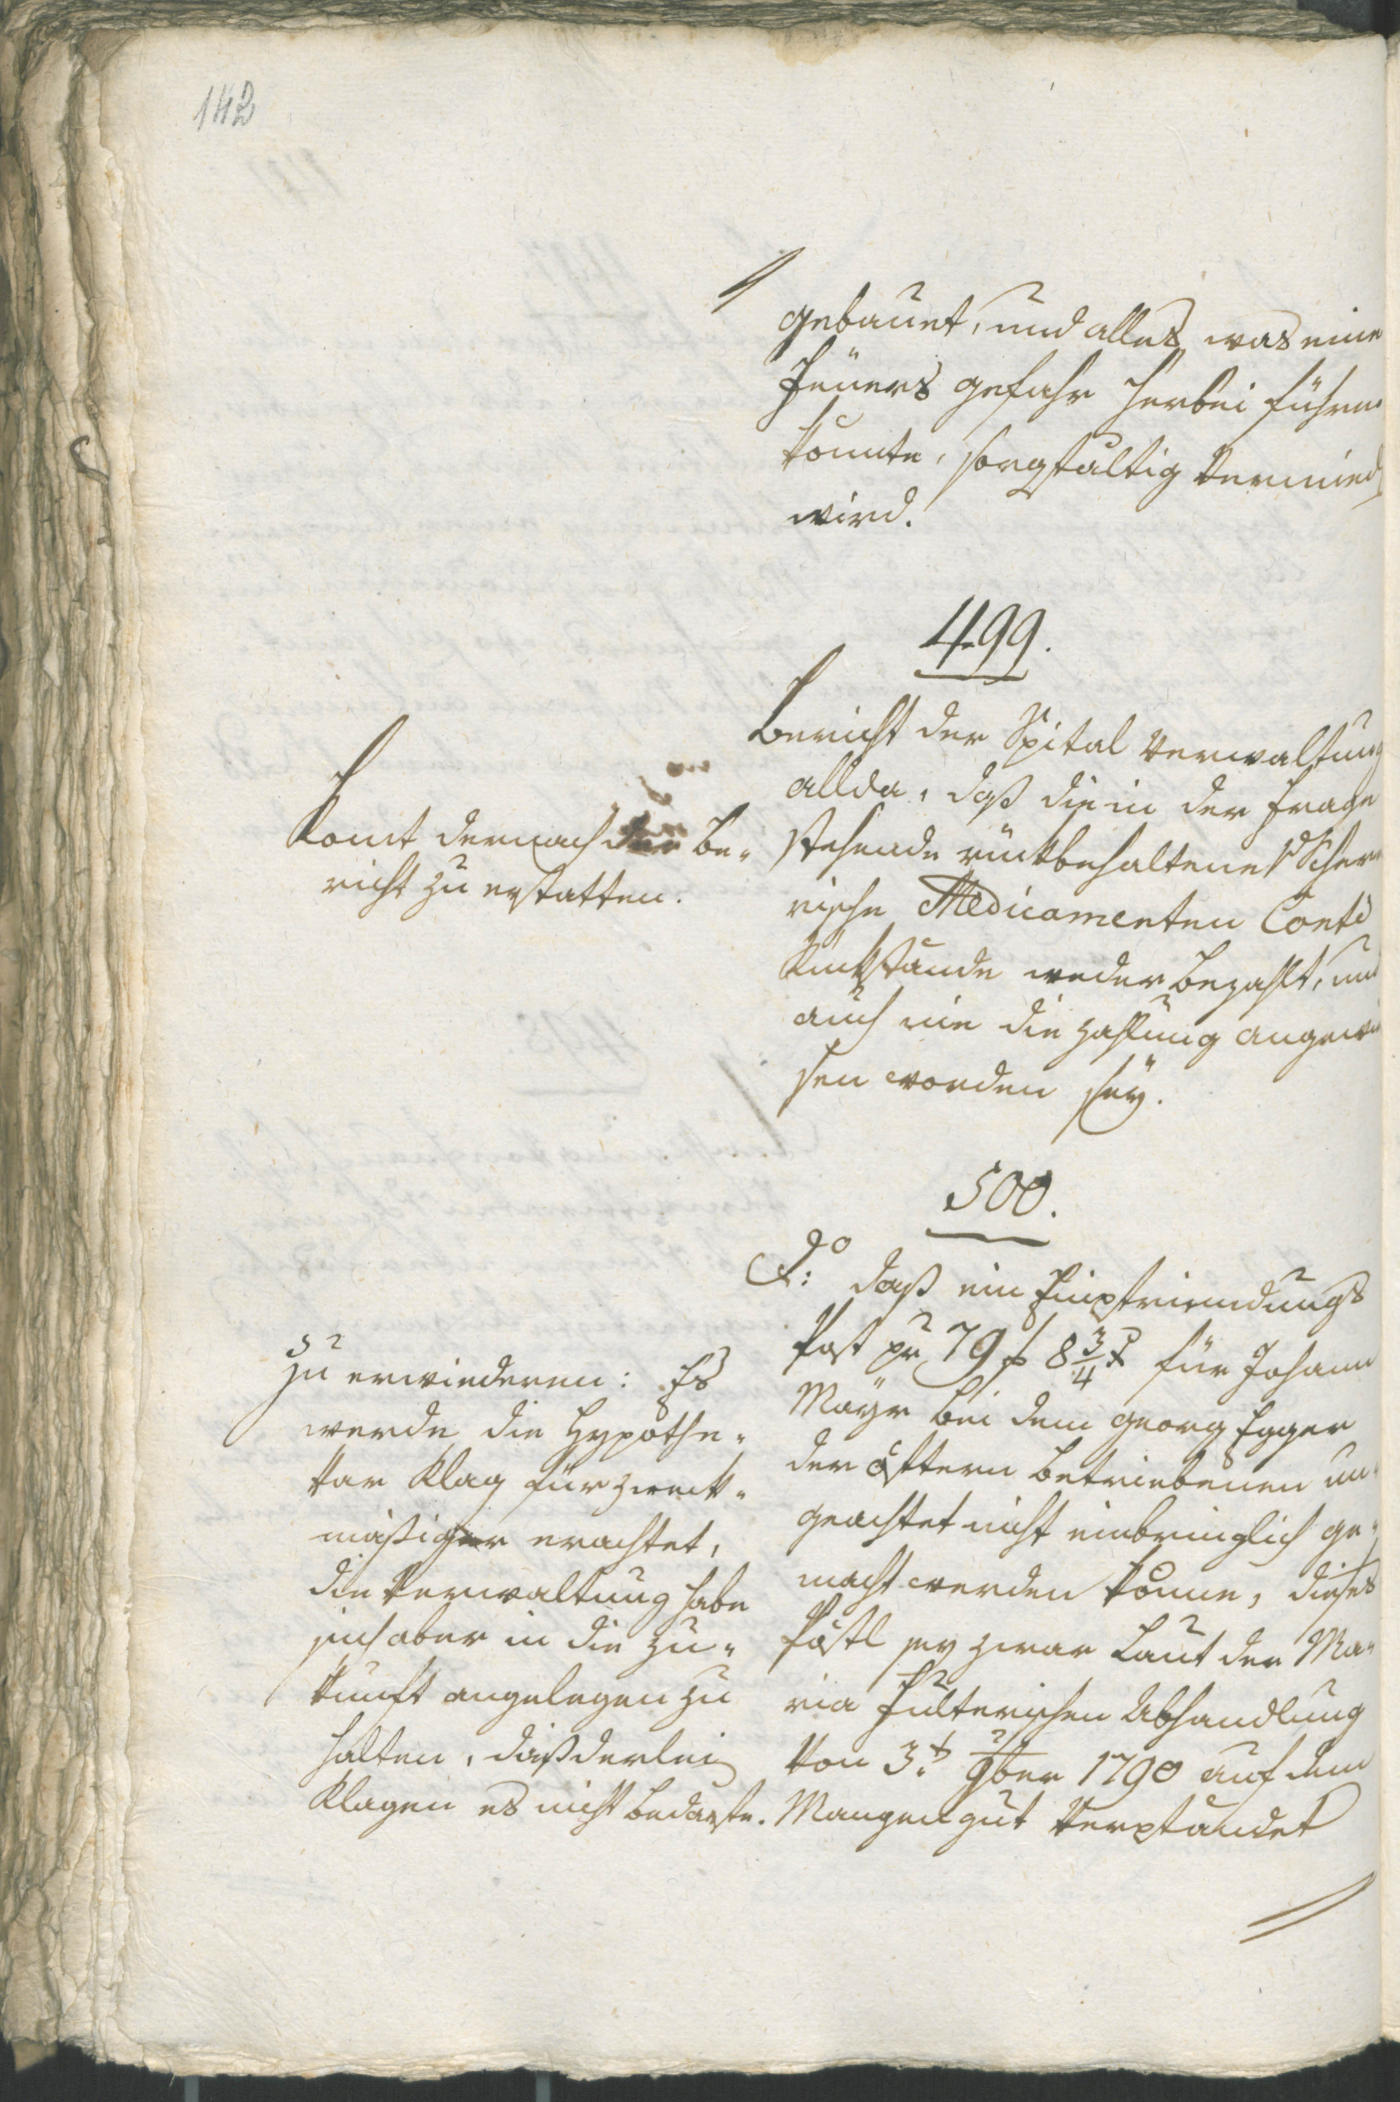 142
gebauet, und alles was eine
Feuers gefahr herbei führen
konnte, sorgfältig vermied
wird.
499.
Bericht der Spital Verwaltung
allda, daß die in der Frage
stehende rückbehaltene
rische Medicamenten Conti
Rückstände weder bezahlt, und
auch nie die Zahlung angewi
sen worden seÿ.
Komt darnach der Be-
richt zu erstatten.
500.
Do: daß ein Einpfriendungs
Post pr 79 f 8 3/4 x für Johann
Mayr bei dem Georg Egger
der öftern betriebenen un-
geachtet nicht einbringlich ge-
macht werden könne, dieses
Pöstl sey zwar laut der Ma-
ria Fulterischen Abhandlung
von 3t 9ber 1790 auf dem
Mangengut verpfändet
Zu erwiederen: Es
werde die Hypothe-
kar Klag für zweck-
mäßiger erachtet,
die Verwaltung habe
sich aber in die Zu-
kunft angelegen zu
halten, daß derlei
Klagen es nicht bedarfe.